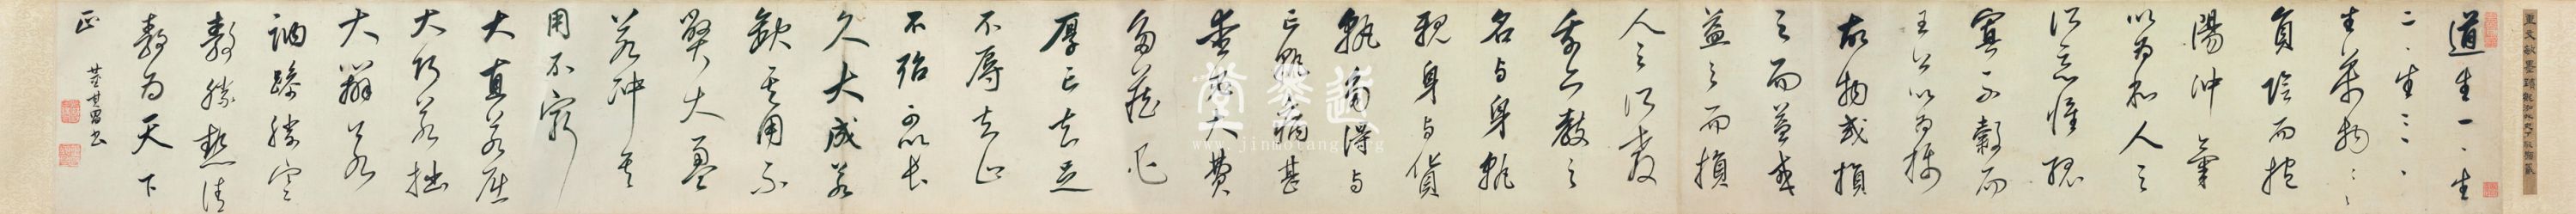 道生一、生
二、生三、、
生萬物、、
負陰而抱
陽沖氣
以為和人之
所惡惟孤
寡不穀而
王公以為稱
故物或損
之而益或
益之而損
人之所教
亦教之
名与身孰
親身与貨
孰多得与
亡孰病甚
愛必大費
多藏必
厚亡知足
不辱知止
不殆可以長
久大成若
缺其用不
弊大盈
若沖其
用不窮
大直若屈
大巧若拙
大辯若
訥躁勝寒
靜勝熱清
靜為天下
正
董其昌書
www.jinmotang.org